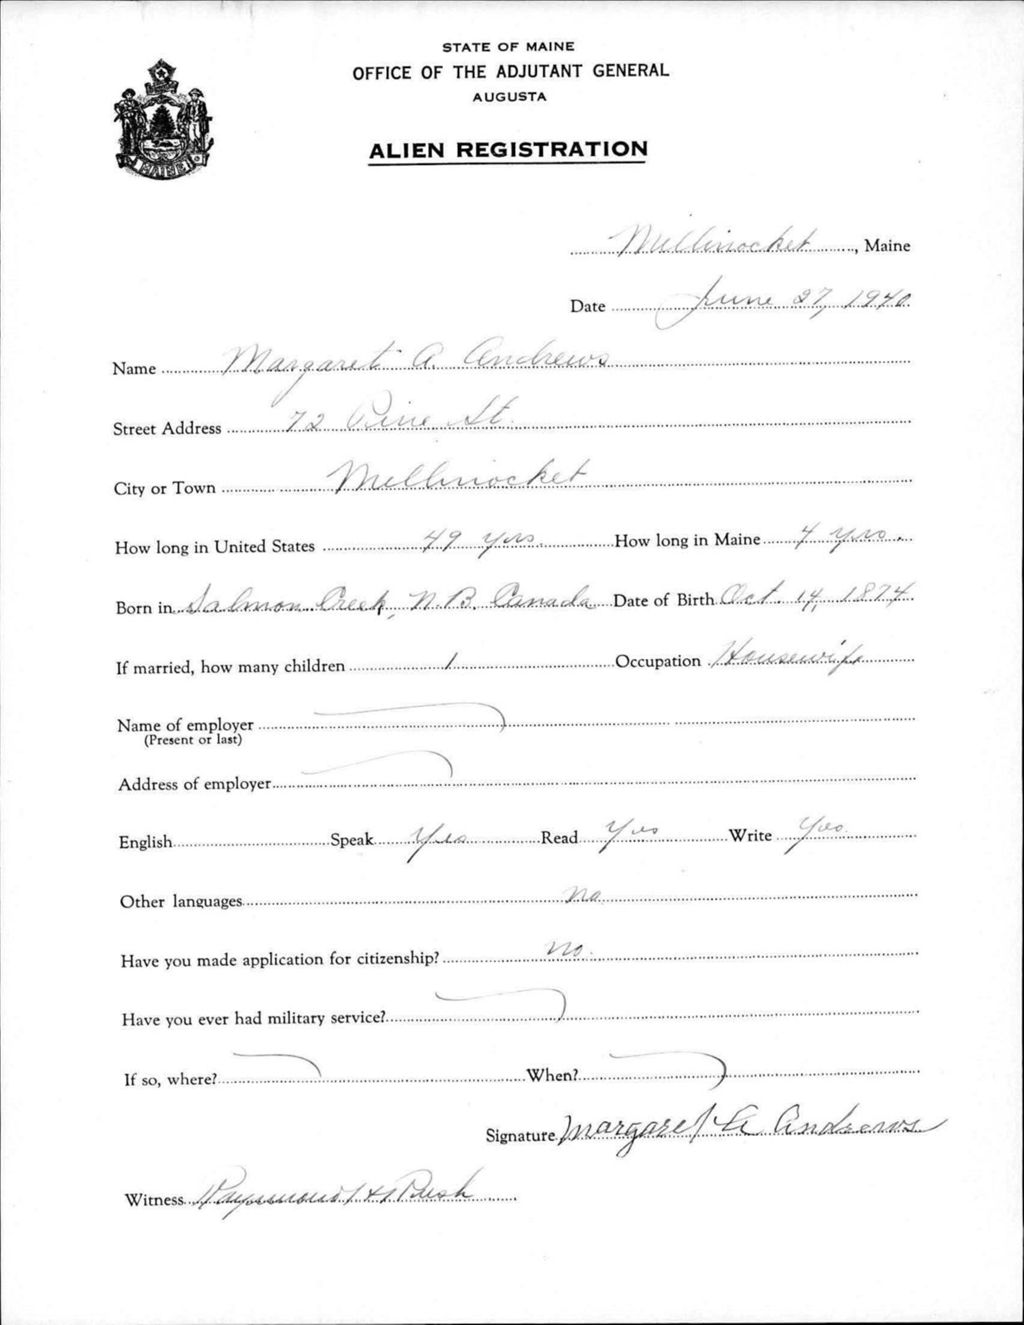 STATE OF MAINE
OFFICE OF THE ADJUTANT GENERAL
AUGUSTA
ALIEN REGISTRATION
MAINE
Millinocket, Maine
Date June 27, 1940
Name Margaret A. Andrews
Street Address 72 Pine St.
City or Town Millinocket
How long in United States 49 yrs. How long in Maine 4 yrs.
Born in Salmon Creek, N.B. Canada Date of Birth Oct. 14, 1874
If married, how many children 1 Occupation Housewife
Name of employer
(Present or last)
Address of employer
English Speak Yes Read Yes Write Yes
Other languages no
Have you made application for citizenship? no.
Have you ever had military service?
If so, where? When?
Signature Margaret A Andrews
Witness Raymond H Rush